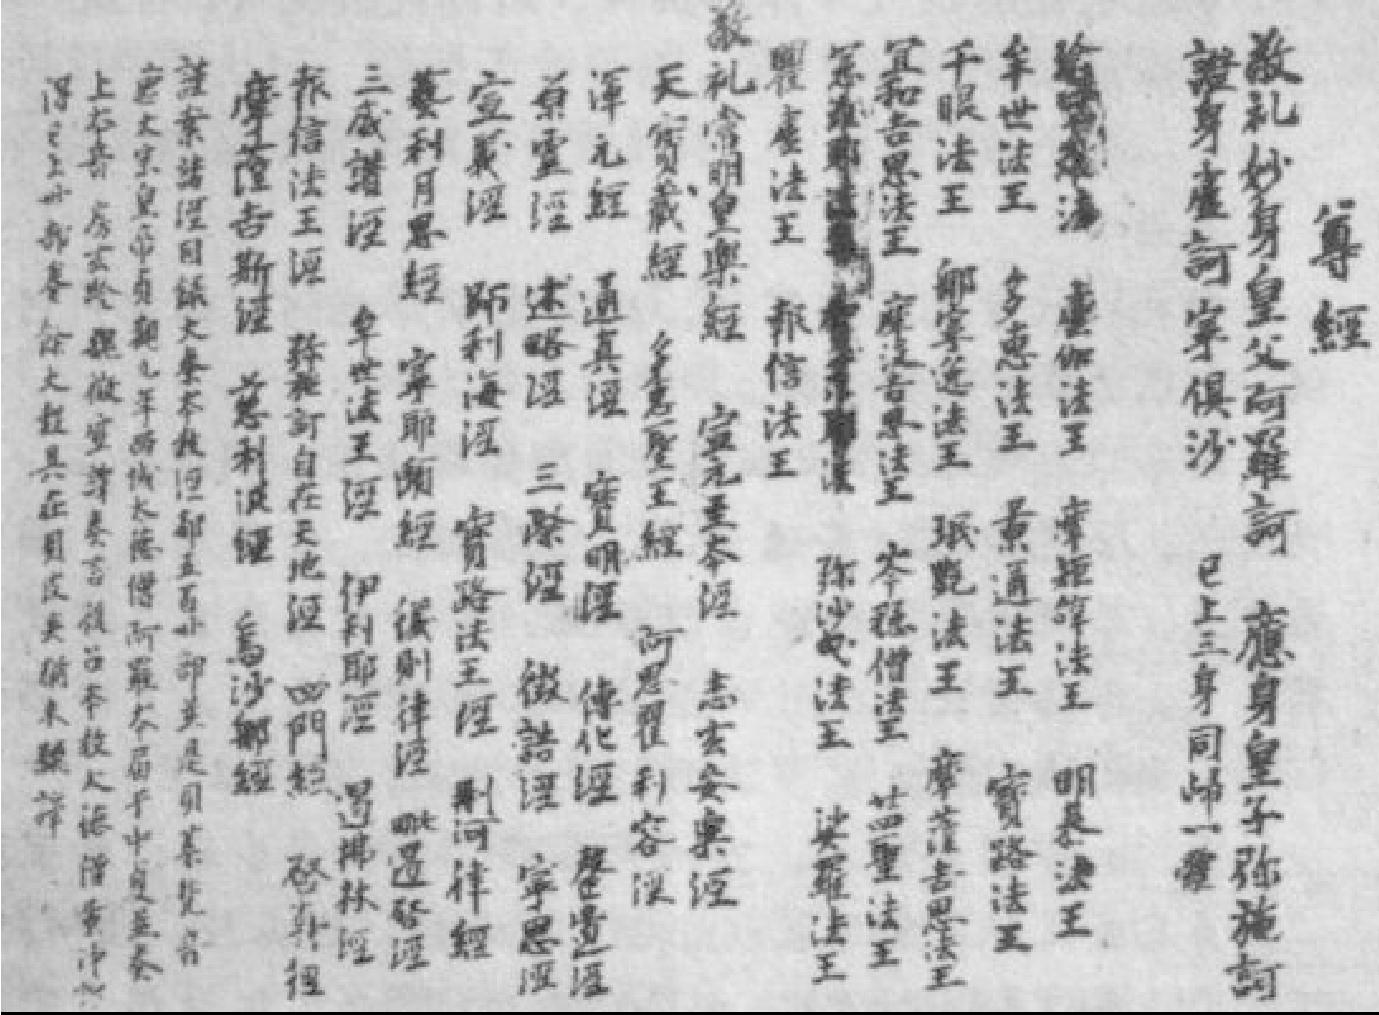 尊經
敬礼妙身皇父阿羅訶 應身皇子弥施訶
證身盧訶寧俱沙 已上三身同歸一體
瑜罕難法 盧伽法王 摩矩辭法王 明泰法王
牟世法王 多惠法王 景通法王 寶路法王
千眼法王 那寧逸法王 珉艶法王 摩薩吉思法王
宜和吉思法王 摩没吉思法王 岑穩僧法王 廿四聖法王
弥沙曳法王 娑羅法王
瞿盧法王 報信法王
敬礼常明皇樂經 宣元至本經 志玄安樂經
天寶藏經 多惠聖王經 阿思瞿利容經
渾元經 通真經 寶明經 傳化經 罄遺經
原靈經 述略經 三際經 徵詰經 寧思經
宣義經 師利海經 寶路法王經 刪河律經
藝利月思經 寧耶頲經 儀則律經 毗遏啓經
三威讚經 牟世法王經 伊利耶經 遏拂林經
報信法王經 弥施訶自在天地經 四門經 啓真經
摩薩吉斯經 慈利波經 烏沙那經
謹案諸經目錄大秦本教經都五百卅部並是貝葉梵音
唐太宗皇帝貞觀九年西域太德僧阿羅本屆于中夏並奏
上本音房玄齡魏徵宣譯奏言後召本教大德僧景淨
得已上卅部卷餘大數具在貝皮夾猶未翻譯